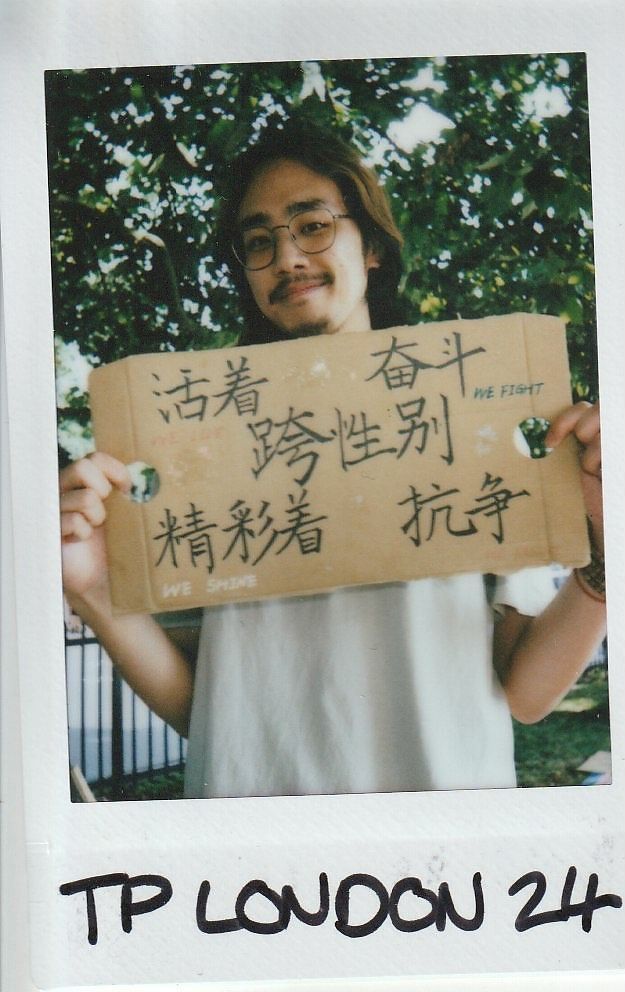 活着 奋斗
WE LIVE WE FIGHT
跨性别
精彩着 抗争
WE SHINE
TP LONDON 24